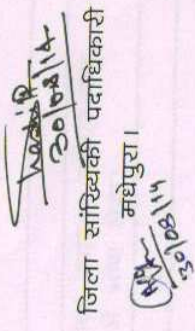 30/08/14
जिला सांख्यिकी पदाधिकारी
मधेपुरा।
30/08/14